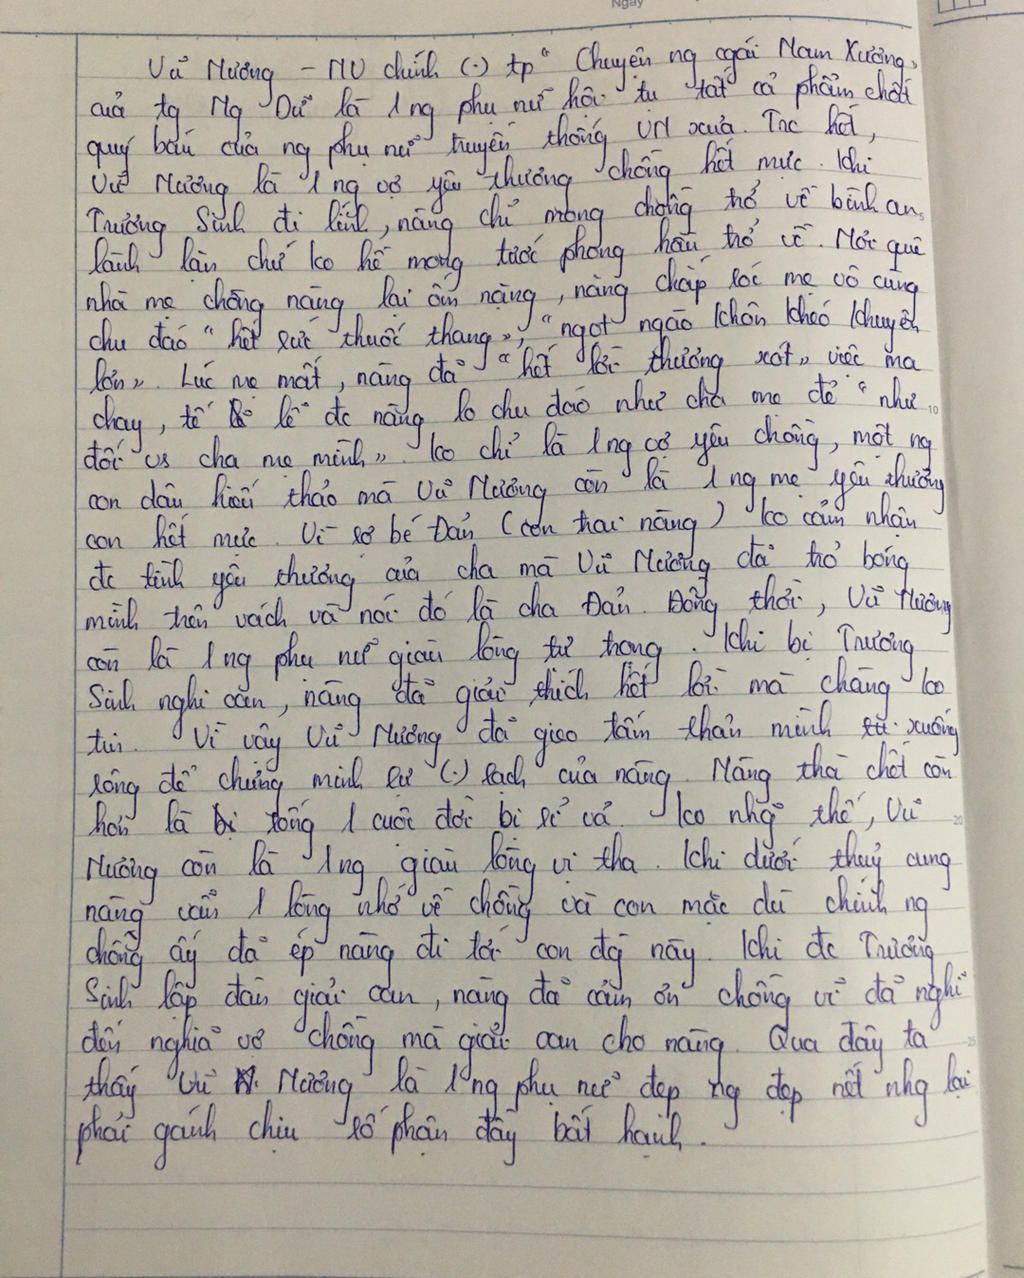 Ngày
Vũ Nương - NV chính (.) tp "Chuyện ng cgái Nam Xương"
của tg Ng Dữ là 1 ng phụ nữ hội tụ tất cả phẩm chất
quý báu của ng phụ nữ truyền thống VN xưa. Trc hết,
Vũ Nương là 1 ng vợ yêu thương chồng hết mực. Khi
Trương Sinh đi lính, nàng chỉ mong chồng trở về bình an,
lành lặn chứ ko hề mong tước phong hầu trở về. Nơi quê
nhà mẹ chồng nàng lại ốm nặng, nàng chăm sóc mẹ vô cùng
chu đáo "hết sức thuốc thang", "ngọt ngào khôn khéo khuyên
lơn". Lúc mẹ mất, nàng đã "hết lời thương xót" việc ma
chay, tế lễ đc nàng lo chu đáo như cha mẹ đẻ "như
10
đối vs cha mẹ mình". Ko chỉ là 1 ng vợ yêu chồng, một ng
con dâu hiếu thảo mà Vũ Nương còn là 1 ng mẹ yêu thương
con hết mực. Vì sợ bé Đản (con trai nàng) ko cảm nhận
đc tình yêu thương của cha mà Vũ Nương đã trỏ bóng
mình trên vách và nói đó là cha Đản. Đồng thời, Vũ Nương
còn là 1 ng phụ nữ giàu lòng tự trọng. Khi bị Trương
Sinh nghi oan, nàng đã giải thích hết lời mà chàng ko
tin. Vì vậy Vũ Nương đã gieo tấm thân mình xuống
sông để chứng minh sự (.) sạch của nàng. Nàng thà chết còn
hơn là sống 1 cuộc đời bị sỉ vả. Ko nhg thế, Vũ
20
Nương còn là 1 ng giàu lòng vị tha. Khi dưới thuỷ cung
nàng vẫn 1 lòng nhớ về chồng và con mặc dù chính ng
chồng ấy đã ép nàng đi tới con đg này. Khi đc Trương
Sinh lập đàn giải oan, nàng đã cảm ơn chồng vì đã nghĩ
đến nghĩa vợ chồng mà giải oan cho nàng. Qua đây ta
25
thấy Vũ Nương là 1 ng phụ nữ đẹp ng đẹp nết nhg lại
phải gánh chịu số phận đầy bất hạnh.